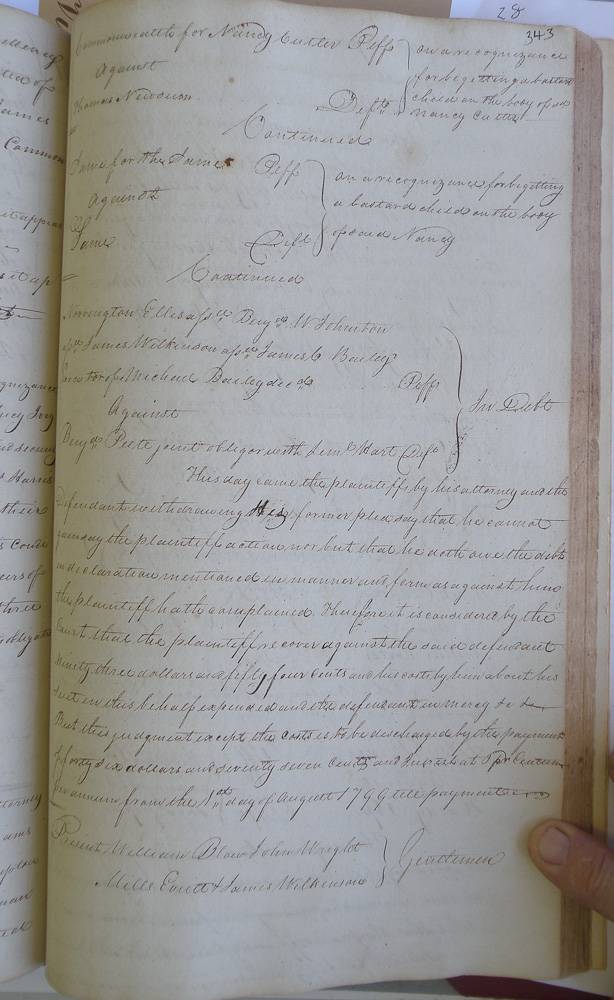 28
343
Commonwealth for Nancy Cutler Peff
Against
Thomas Newsum Deft
on a recognizance
for begetting a bastard
child on the body of sd
Nancy Cutler
Continued
Same for the Same Peff
Against
Same Deft
on a recognizance for begetting
a bastard child on the body
of said Nancy
Continued
Norrington Ellis assee Benja W. Johnston
assee James Wilkinson assee James Bailey
of Michael Bailey decd Peff
Against
Benja Peete joint obligor with Saml Hart Deft
In Debt
This day came the plaintiff by his attorney and the
defendant withdrawing His former plea say that he cannot
gainsay the plaintiff action nor but that he doth owe the debt
in declaration mentioned in manner and form as against him
the plaintiff hath complained. Therefore it is considered by the
Court that the plaintiff recover against the said defendant
Ninety three dollars and fifty four Cents and his costs by him about his
suit in this behalf expended and the defendant in mercy &c
But this judgment except the costs is to be discharged by the payment
of forty six dollars and seventy seven Cents and Interest at 5 pr Centum
per annum from the 1st day of August 1799 till payment
Present William Blow John Wright
Mills Eeutt & James Wilkinson
Gentlemen